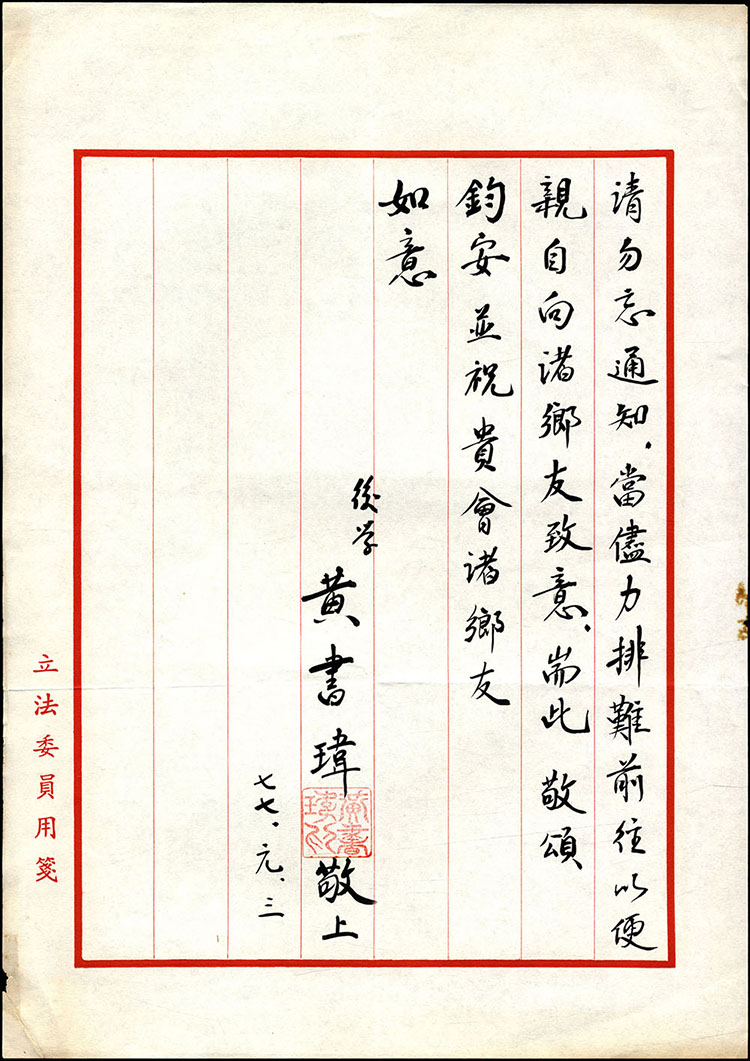 請勿忘通知，當儘力排難前往以便
親自向諸鄉友致意，耑此 敬頌
鈞安 並祝 貴會諸鄉友
如意
後学 黃書瑋 敬上
黃書瑋印
七七、元、三
立法委員用箋